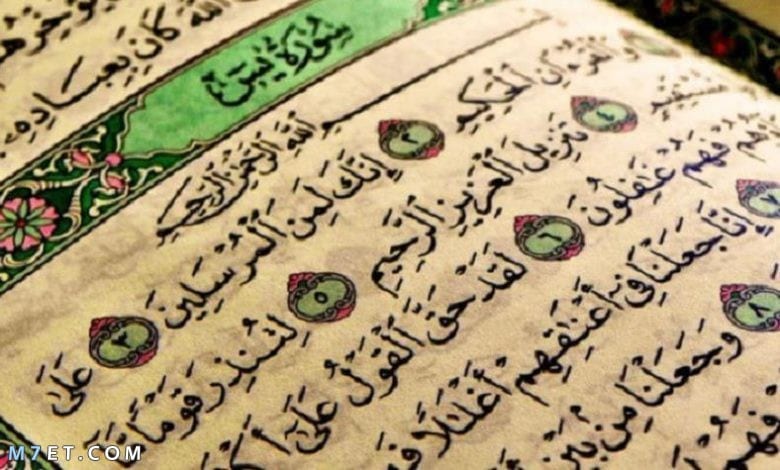 ٱللَّهَ كَانَ بِعِبَادِهِ
سُورَةُ يسٓ
ٱللَّهِ ٱلرَّحْمَٰنِ ٱلرَّحِيمِ
وَٱلْقُرْءَانِ ٱلْحَكِيمِ ٢ إِنَّكَ لَمِنَ ٱلْمُرْسَلِينَ ٣ عَلَىٰ
٤ تَنزِيلَ ٱلْعَزِيزِ ٱلرَّحِيمِ ٥ لِتُنذِرَ قَوْمًا مَّا
فَهُمْ غَٰفِلُونَ ٦ لَقَدْ حَقَّ ٱلْقَوْلُ عَلَىٰٓ
٧ إِنَّا جَعَلْنَا فِىٓ أَعْنَٰقِهِمْ أَغْلَٰلًا
٨ وَجَعَلْنَا مِنۢ بَيْنِ
M7ET.COM